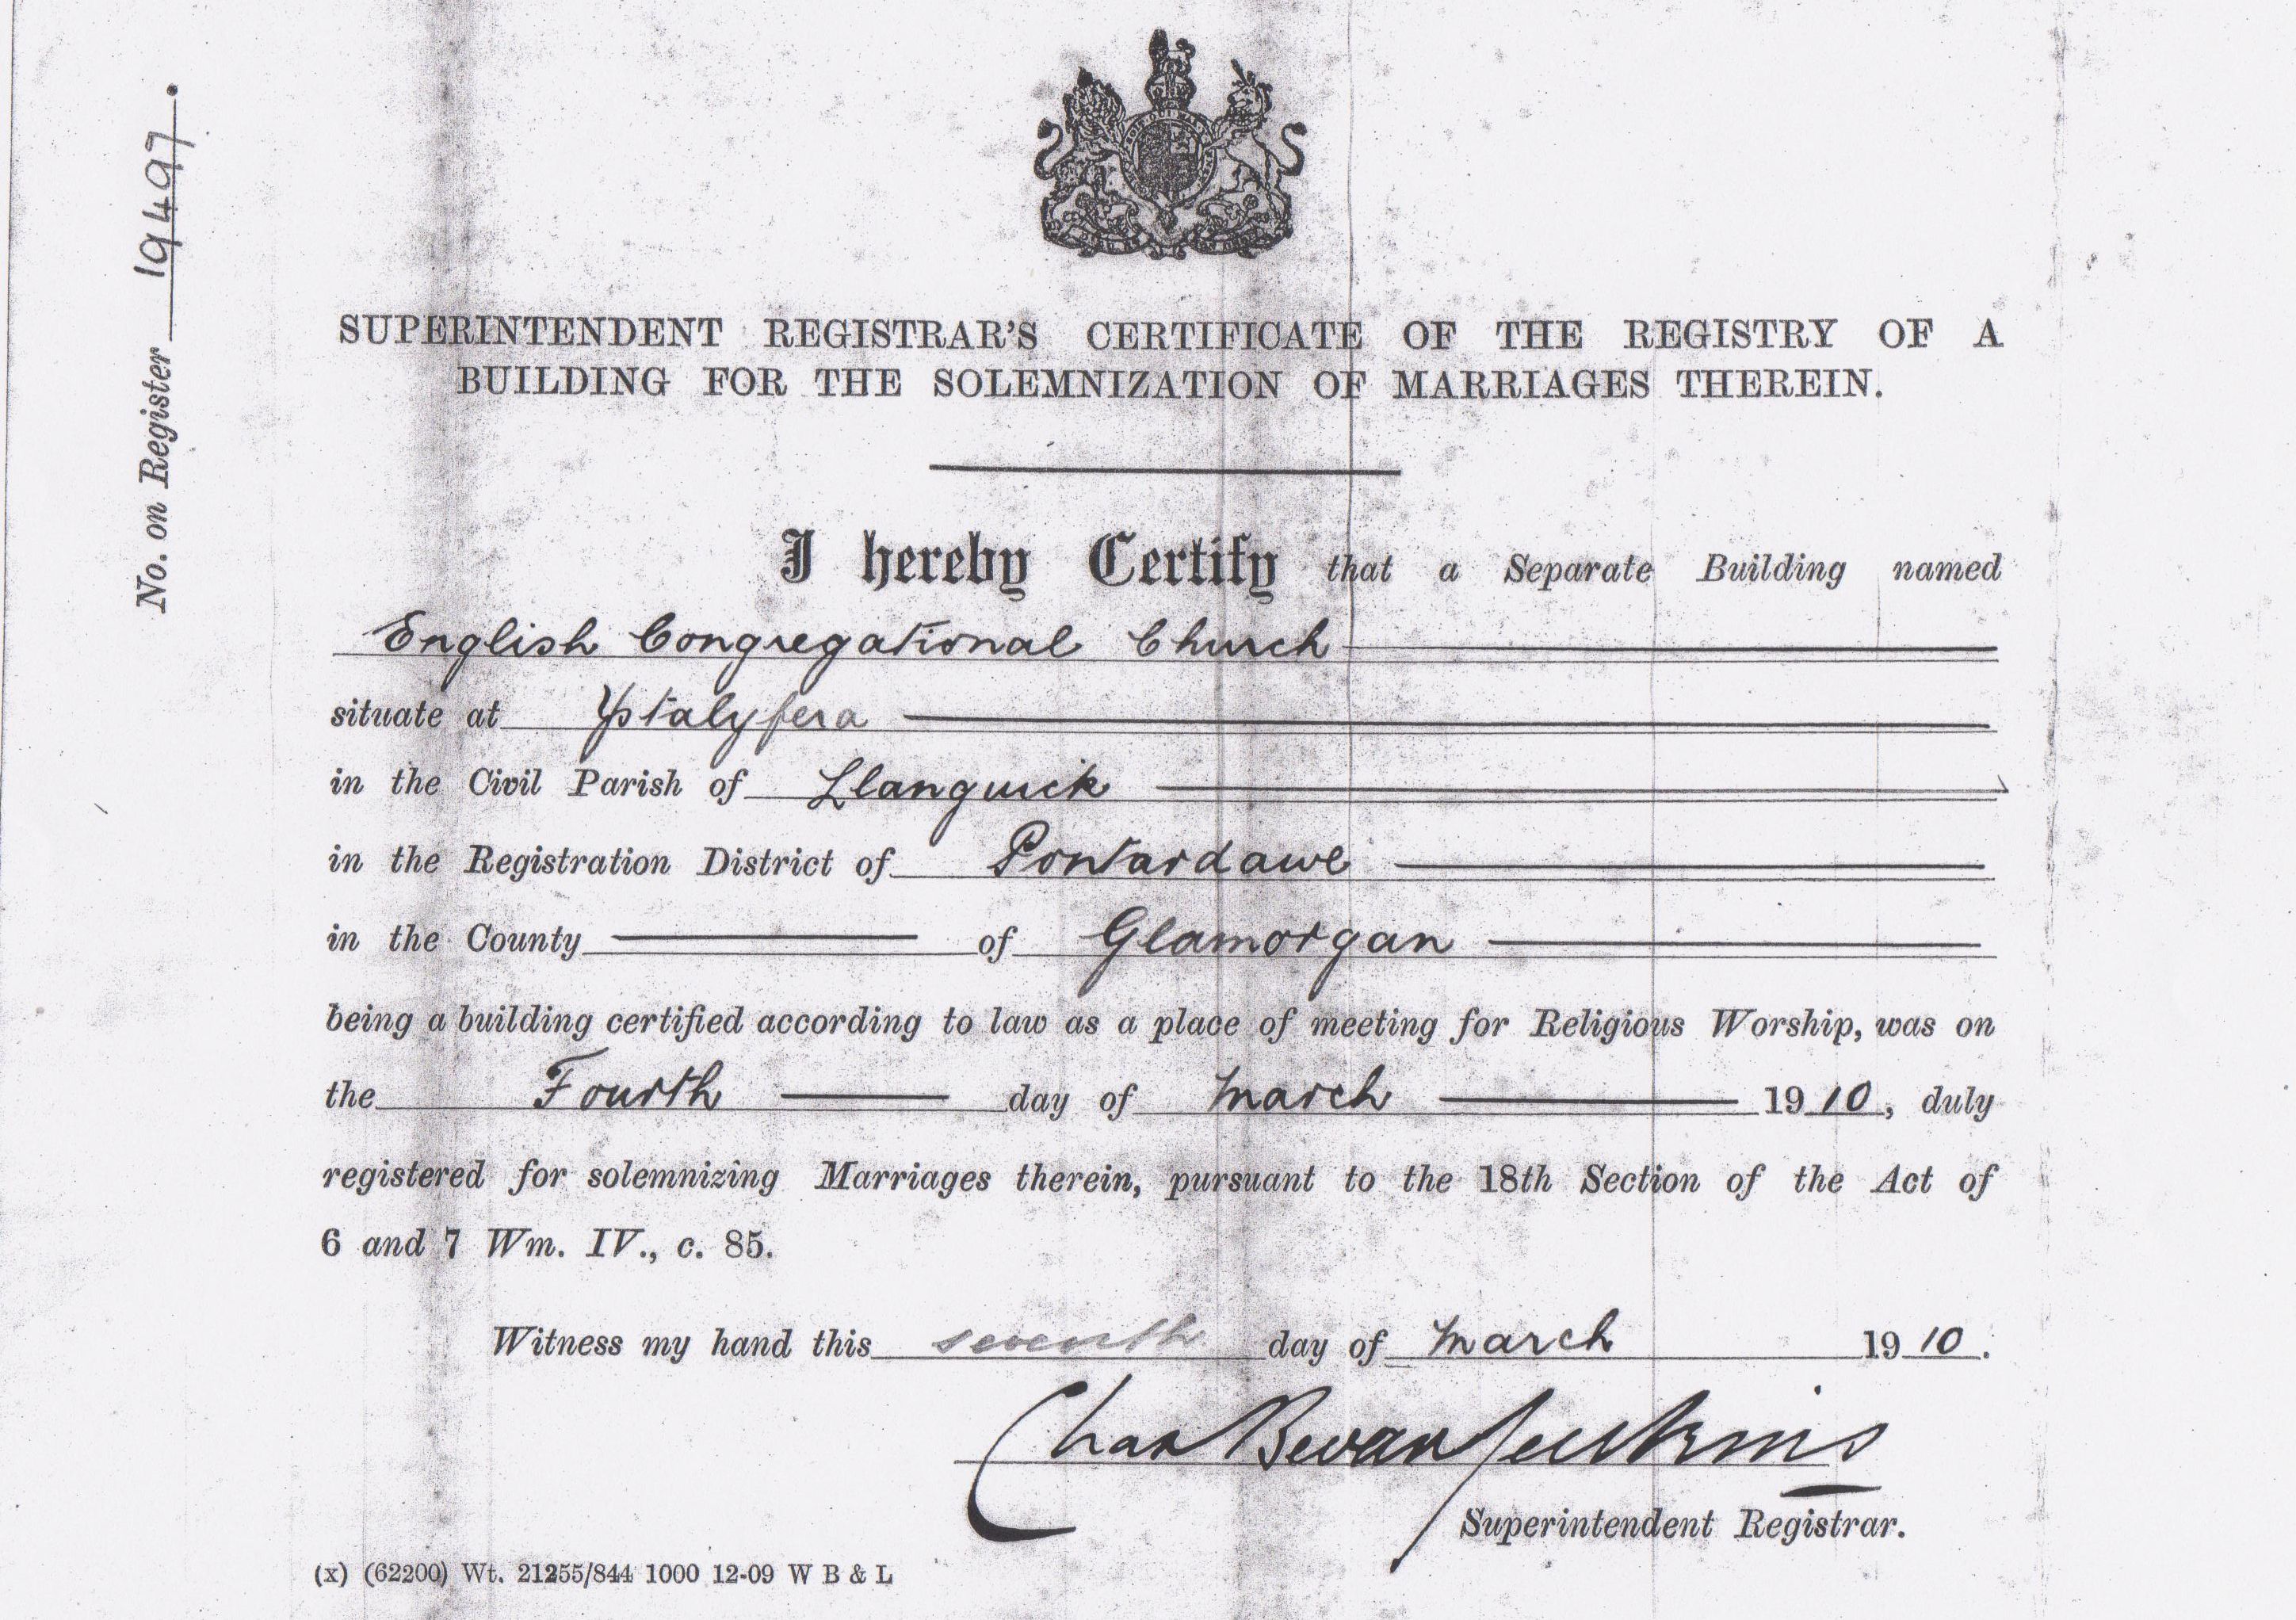 No. on Register 19497.
SUPERINTENDENT REGISTRAR'S CERTIFICATE OF THE REGISTRY OF A
BUILDING FOR THE SOLEMNIZATION OF MARRIAGES THEREIN.
I hereby Certify that a Separate Building named
English Congregational Church
situate at Ystalyfera
in the Civil Parish of Llanguick
in the Registration District of Pontardawe
in the County of Glamorgan
being a building certified according to law as a place of meeting for Religious Worship, was on
the Fourth day of March 1910, duly
registered for solemnizing Marriages therein, pursuant to the 18th Section of the Act of
6 and 7 Wm. IV., c. 85.
Witness my hand this seventh day of March 1910.
Chas Bevan Jenkins
Superintendent Registrar.
(x) (62200) Wt. 21255/844 1000 12-09 W B & L